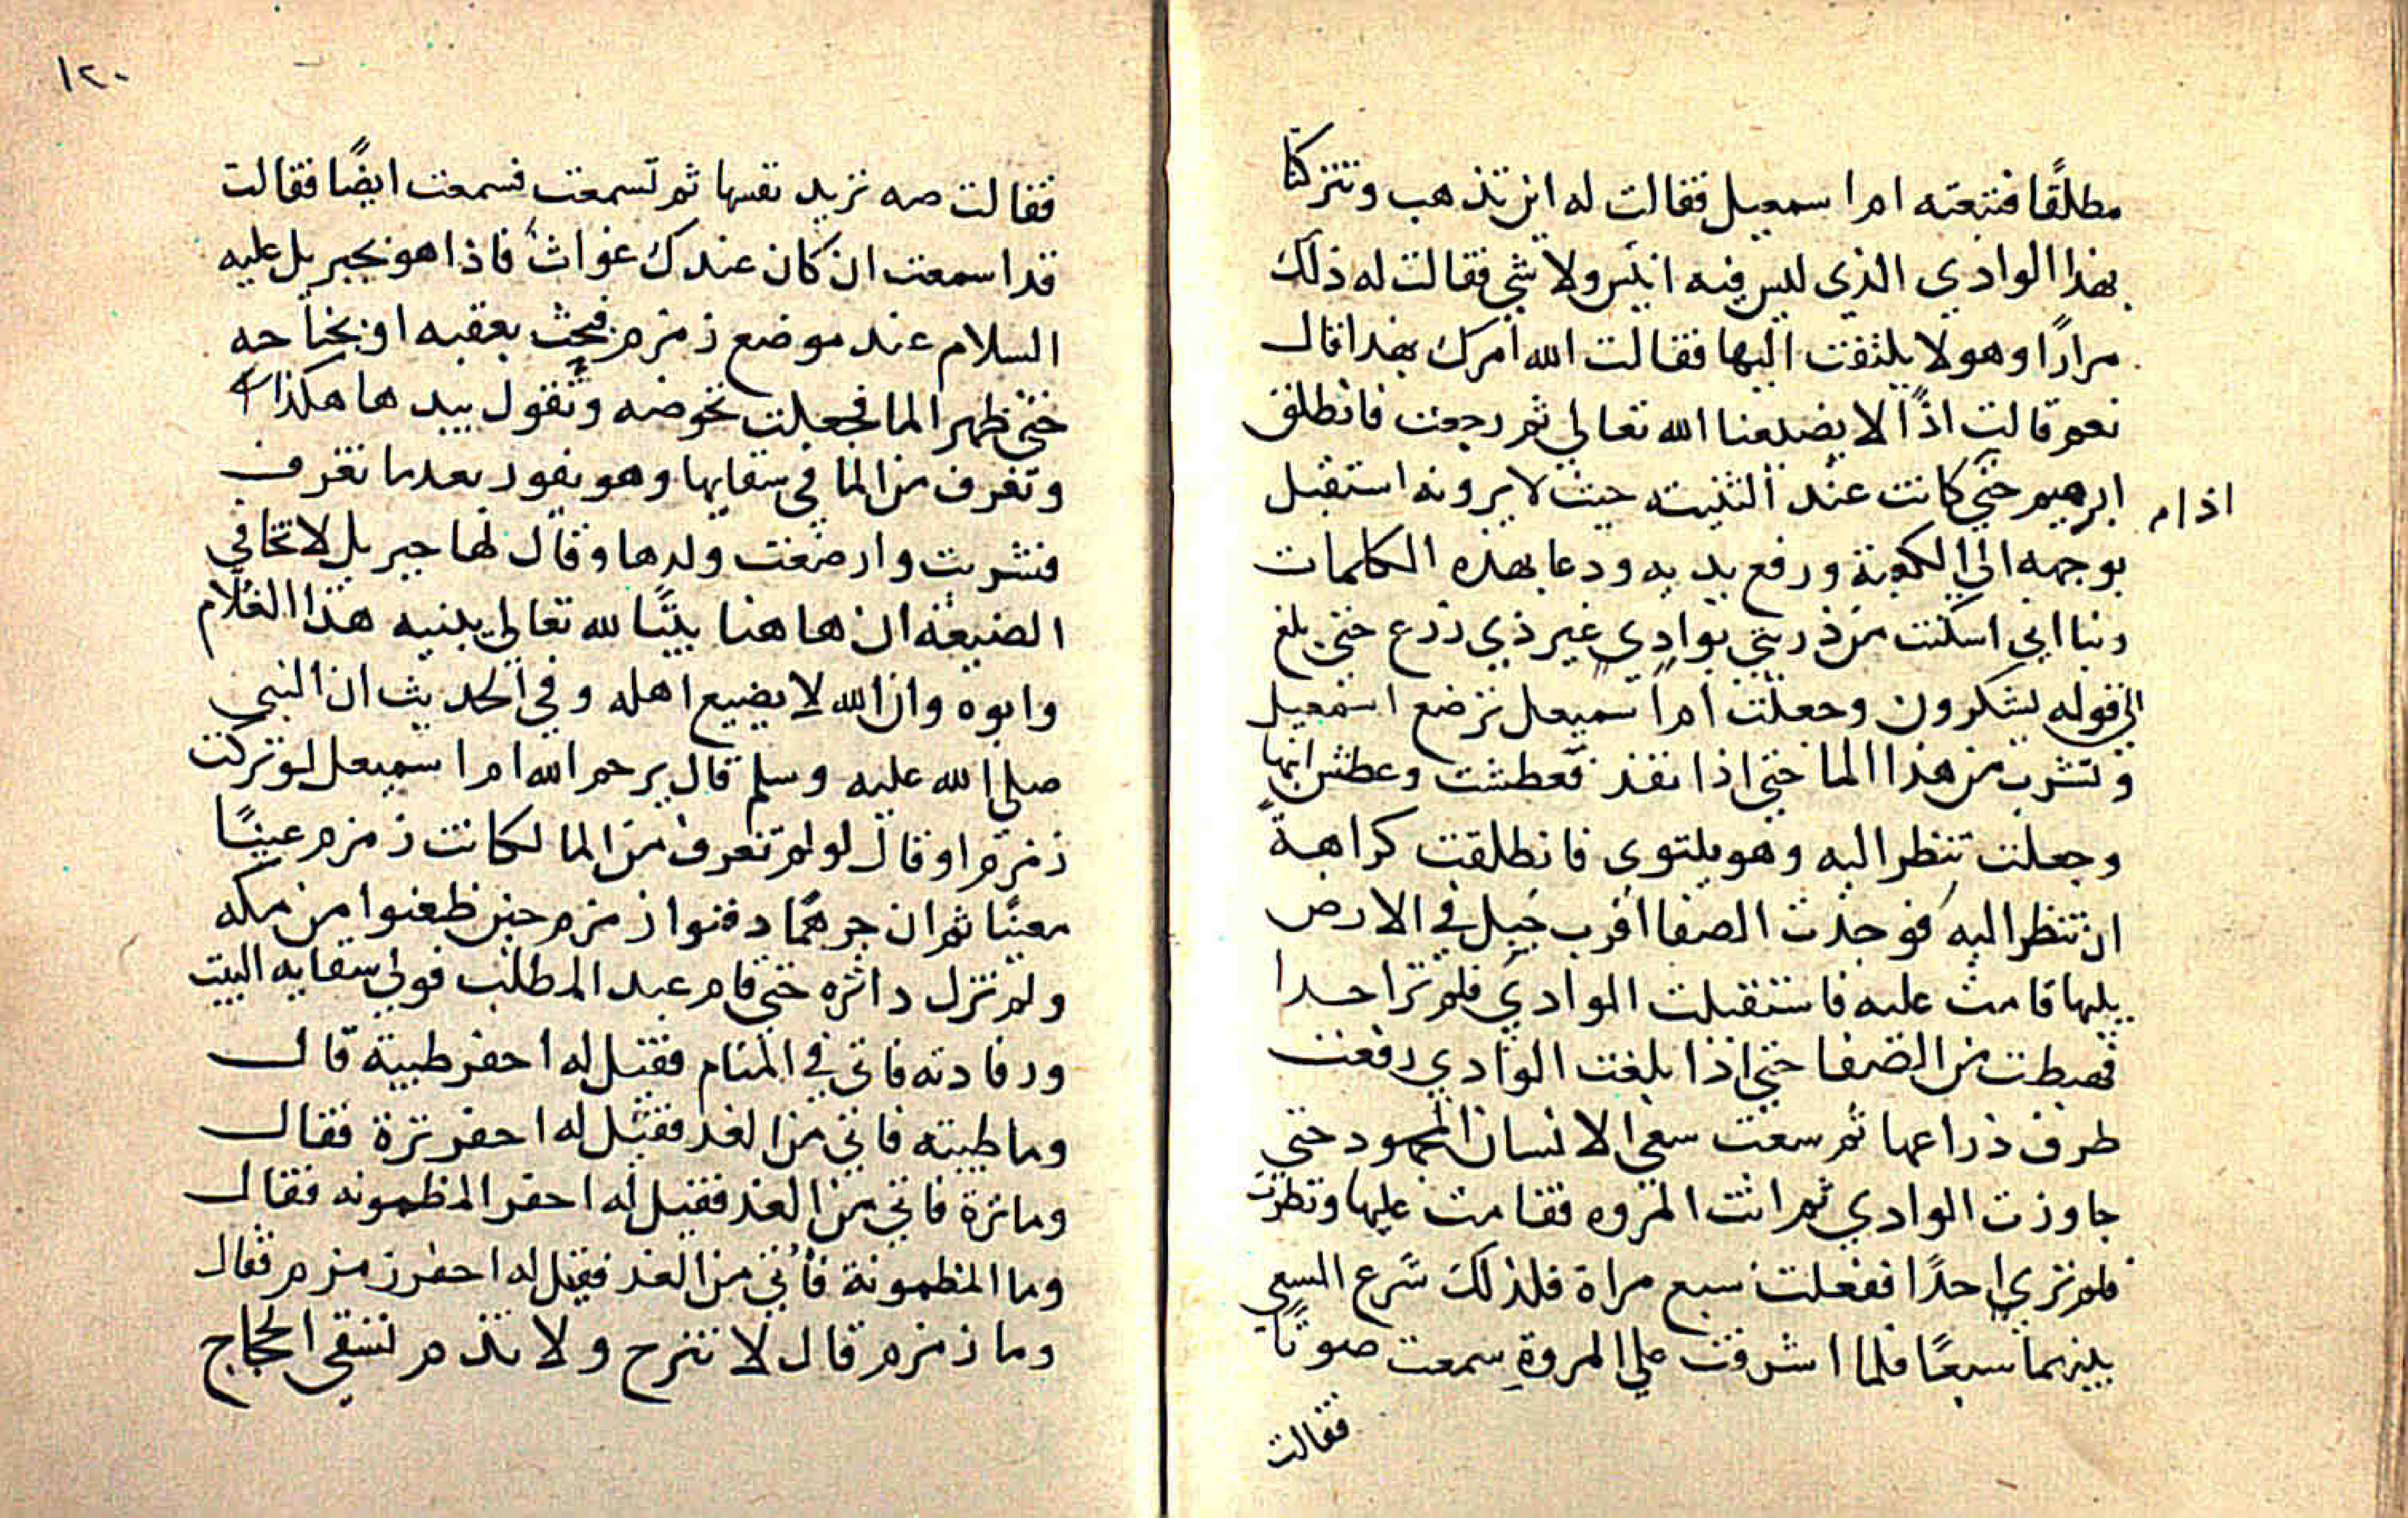 مطلقًا فتبعته ام اسمعيل فقالت له اين تذهب وتتركنا
بهذا الوادي الذي ليس فيه انيس ولا شي فقالت له ذلك
مرارًا وهو لا يلتفت اليها فقالت الله امرك بهذا قال
نعم قالت اذًا لا يضيعنا الله تعالي ثم رجعت فانطلق
ابرهيم حتي كانت عند الثنيته حيث لا يرونه استقبل
اذا م
بوجهه الي الكعبة ورفع يديه ودعا بهذه الكلمات
ربنا اني اسكنت من ذريتي بوادي غير ذي زرع حتي بلغ
الي قوله يشكرون وجعلت ام اسميعل ترضع اسمعيل
وتشرب من هذا الما حتي اذا نفذ فعطشت وعطش ابنها
وجعلت تنظر اليه وهو يلتوي فانطلقت كراهةً
ان تنظر اليه فوجدت الصفا اقرب جبل في الارض
يليها قامت عليه فاستقبلت الوادي فلم تر احدا
فهبطت من الصفا حتي اذا بلغت الوادي رفعت
طرف ذراعها ثم سعت سعي الانسان المجهود حتي
جاوزت الوادي ثم اتت المروه فقامت عليها ونظرت
فلم تري احدًا ففعلت سبع مراة فلذلك شرع السعي
بينهما سبعًا فلما اشرفت علي المروةِ سمعت صوتًا
فقالت
١٢٠
فقالت صه تريد نفسها ثم تسمعت فسمعت ايضًا فقالت
قد اسمعت ان كان عندك غواث فاذا هو بجبريل عليه
السلام عند موضع زمزم فبحث بعقبه او بجناحه
حتي ظهر الما فجعلت تحوضه وتقول بيدها هكذا
وتغرف من الما في سقايها وهو يفور بعد ما تغرف
فشربت وارضعت ولدها وقال لها جبريل لا تخافي
الضيعة ان هاهنا بيتًا لله تعالي يبنيه هذا الغلام
وابوه وان الله لا يضيع اهله وفي الحديث ان النبي
صلي الله عليه وسلم قال يرحم الله ام اسميعل لو تركت
زمزم او قال لو لم تغرف من الما لكانت زمزم عينًا
معينًا ثم ان جرهمًا دفنوا زمزم حين ظعنوا من مكه
ولم تزل داثره حتي قام عبد المطلب فولي سقايه البيت
ورفادته فاتي في المنام فقيل له احفر طيبة قال
وما طيبته فاتي من الغد فقيل له احفر برة فقال
وما برة فاتي من الغد فقيل له احفر المظمونه فقال
وما المظمونة فأتي من الغد فقيل له احفر زمزم فقال
وما زمزم قال لا تنزح ولا تذم تسقي الحجاج